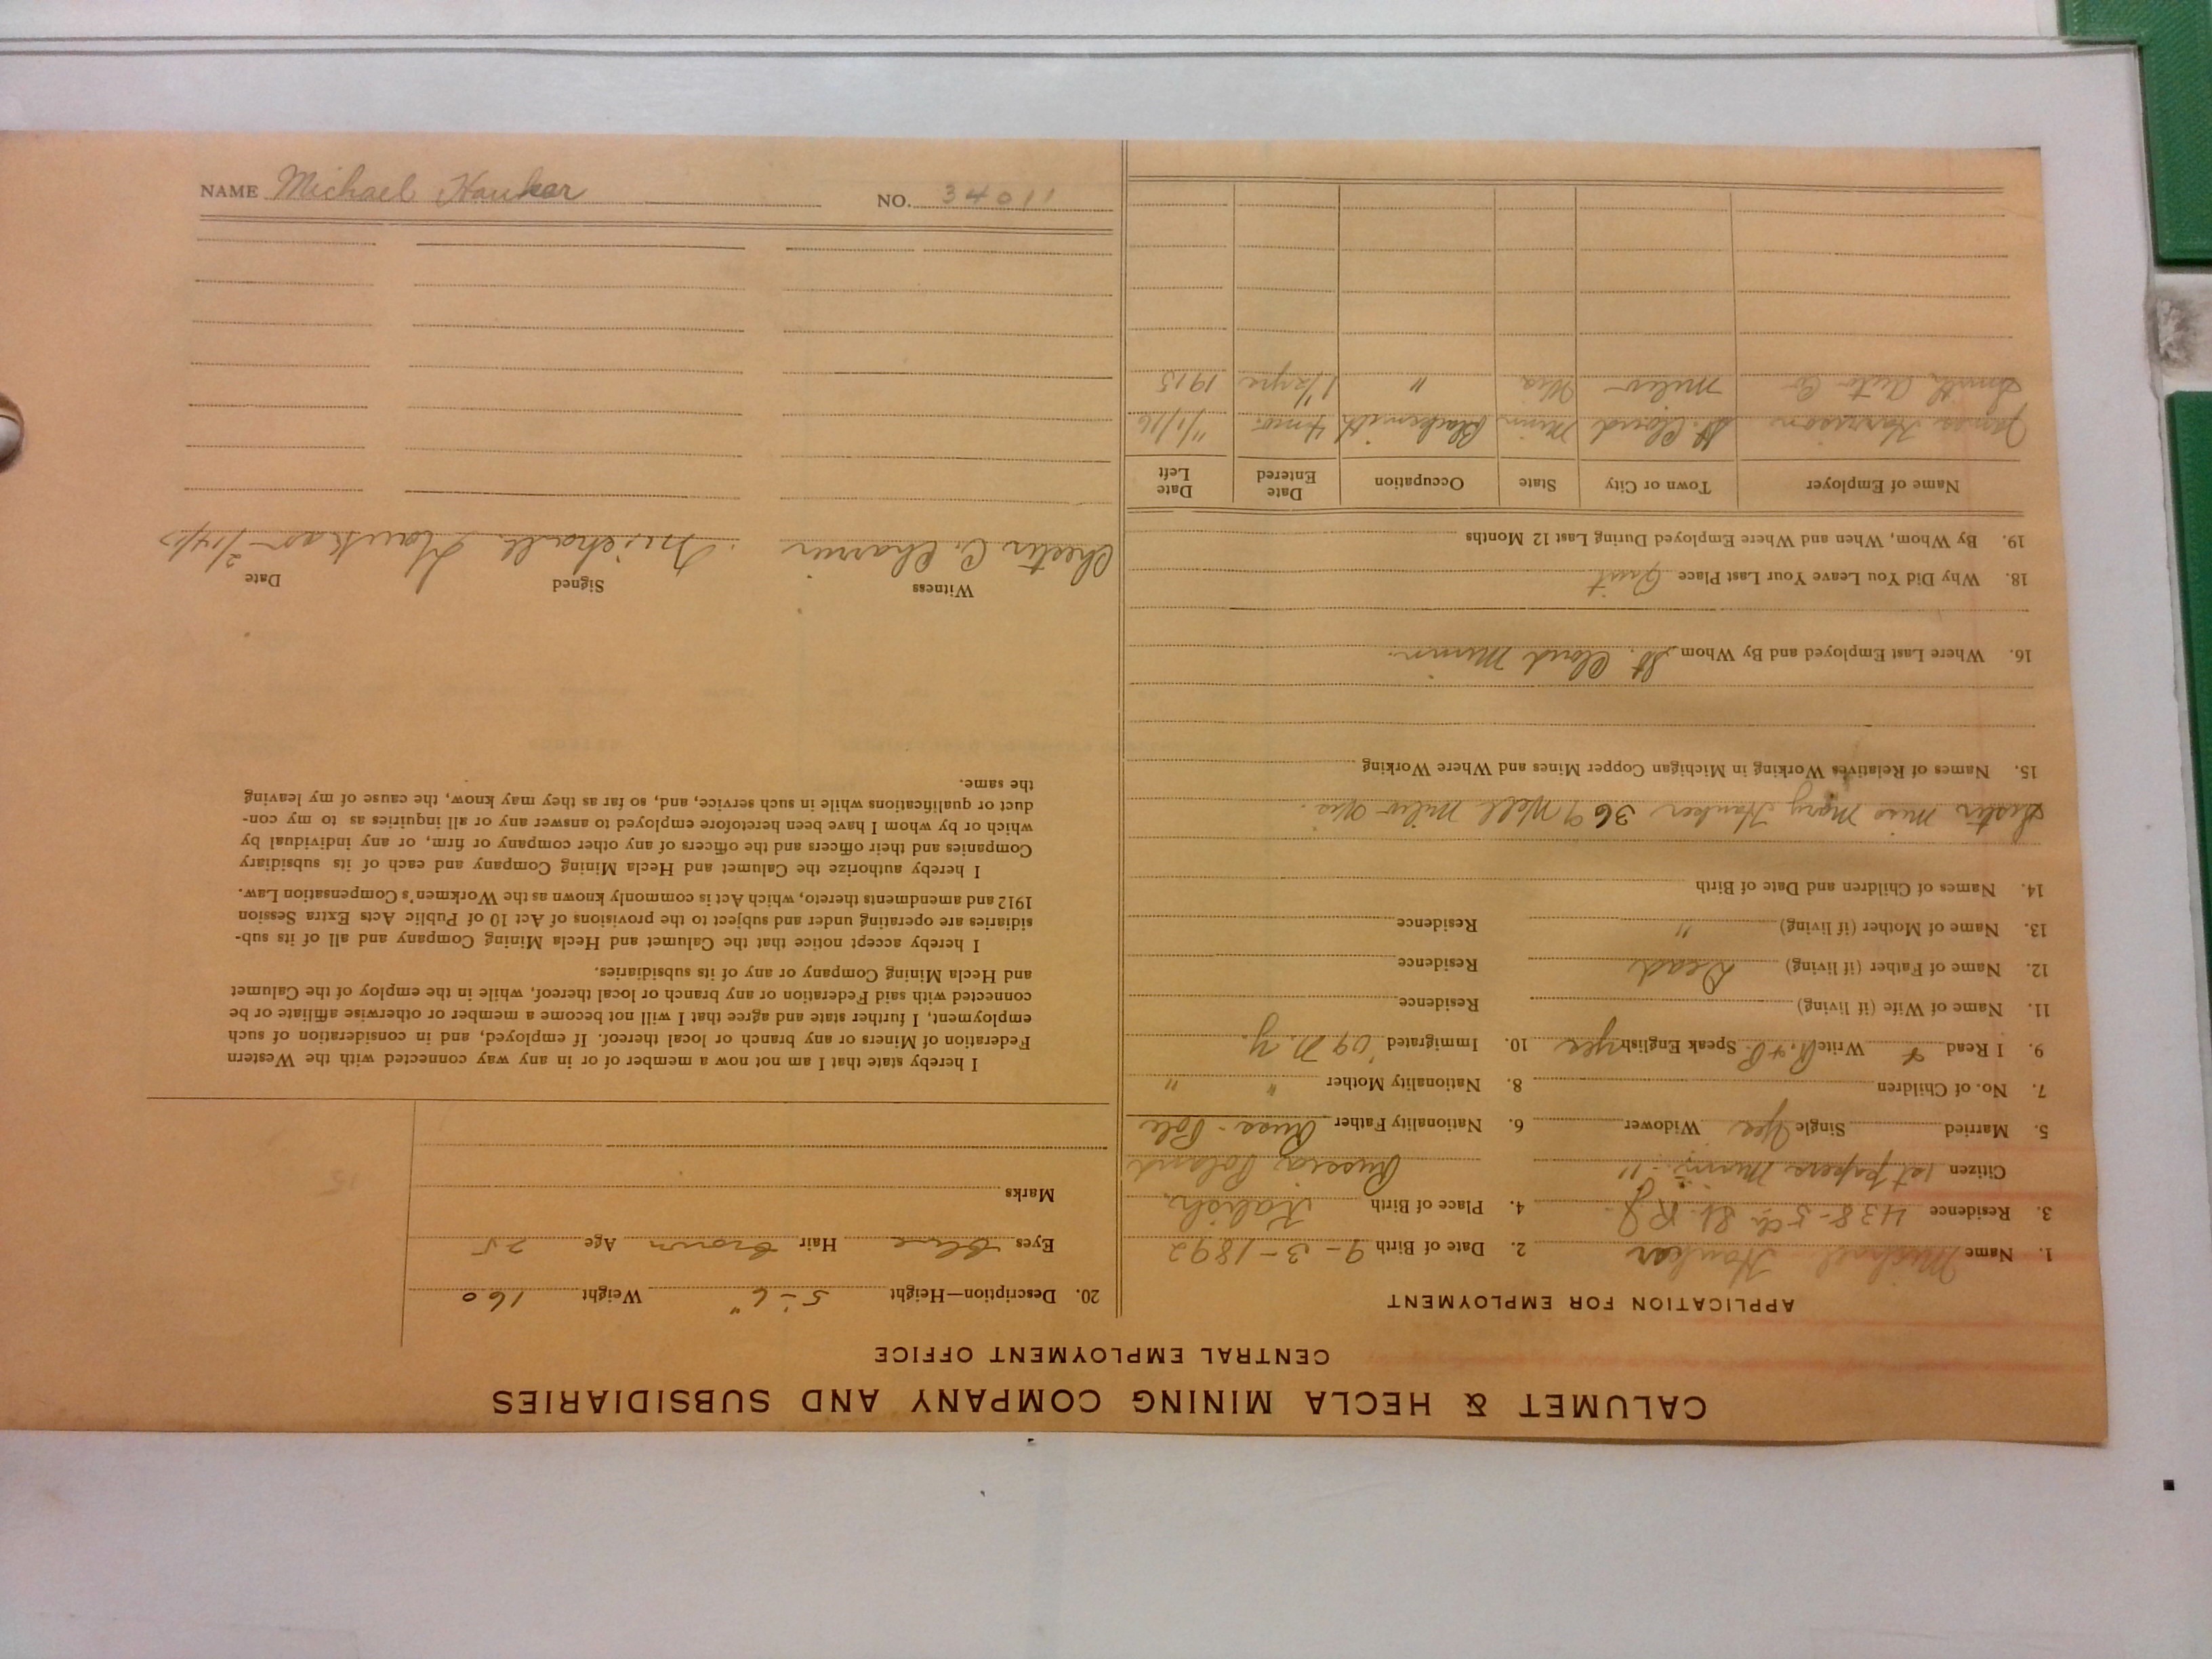 CALUMET & HECLA MINING COMPANY AND SUBSIDIARIES
CENTRAL EMPLOYMENT OFFICE
APPLICATION FOR EMPLOYMENT
1. Name Michael Haukar 2. Date of Birth 9-3-1892
3. Residence 438-5th St. R.J. 4. Place of Birth Kalish,
Citizen 1st papers Minn. '11 Russia Poland
5. Married Single Yes Widower 6. Nationality Father Russ-Pole
7. No. of Children 8. Nationality Mother " "
9. I Read + Write R. + P. Speak English yes 10. Immigrated '09 N.Y.
11. Name of Wife (if living) Residence
12. Name of Father (if living) Dead Residence
13. Name of Mother (if living) " Residence
14. Names of Children and Date of Birth
Sister Miss Mary Haukar 369 Well Milw Wis.
15. Names of Relatives Working in Michigan Copper Mines and Where Working
16. Where Last Employed and By Whom St. Cloud Minn.
18. Why Did You Leave Your Last Place Quit
19. By Whom, When and Where Employed During Last 12 Months
Name of Employer Town or City State Occupation Date Entered Date Left
James Harrison St. Cloud Minn Blacksmith 4 mo. 11/1/16
Smith Auto Co Milw Wis " 1 1/2 yrs 1915
20. Description—Height 5-6" Weight 160
Eyes Blue Hair Brown Age 25
Marks
I hereby state that I am not now a member of or in any way connected with the Western
Federation of Miners or any branch or local thereof. If employed, and in consideration of such
employment, I further state and agree that I will not become a member or otherwise affiliate or be
connected with said Federation or any branch or local thereof, while in the employ of the Calumet
and Hecla Mining Company or any of its subsidiaries.
I hereby accept notice that the Calumet and Hecla Mining Company and all of its sub-
sidiaries are operating under and subject to the provisions of Act 10 of Public Acts Extra Session
1912 and amendments thereto, which Act is commonly known as the Workmen's Compensation Law.
I hereby authorize the Calumet and Hecla Mining Company and each of its subsidiary
Companies and their officers and the officers of any other company or firm, or any individual by
which or by whom I have been heretofore employed to answer any or all inquiries as to my con-
duct or qualifications while in such service, and, so far as they may know, the cause of my leaving
the same.
Witness Signed Date
Chester C. Michael Haukar 2/14/17
NAME Michael Haukar NO. 34011